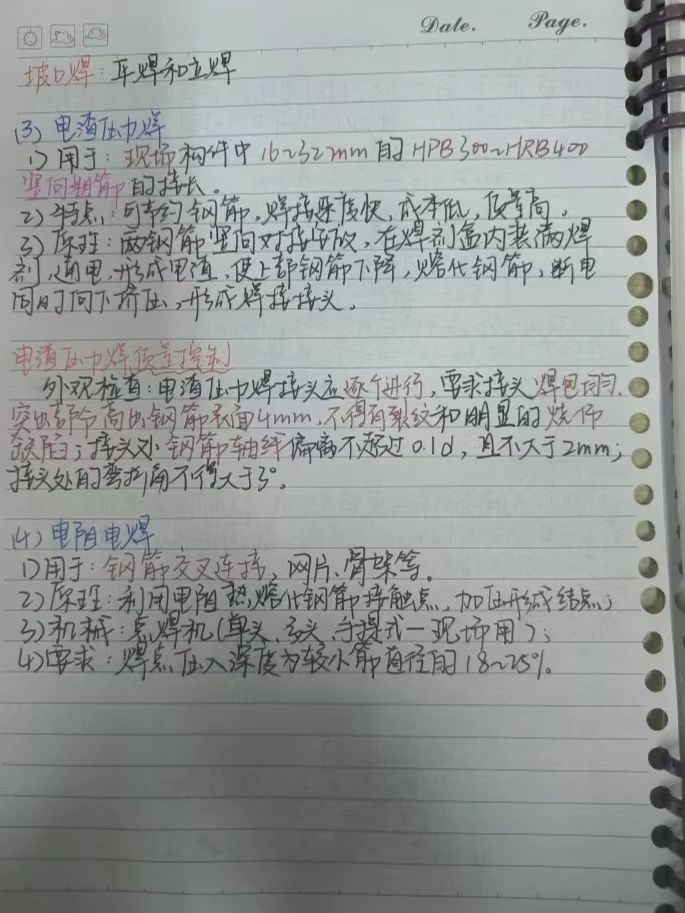 Date. Page.
坡口焊：平焊和立焊
(3) 电渣压力焊
1) 用于：现场构件中16~32mm的HPB300~HRB400
竖向钢筋的接长。
2) 特点：可节约钢筋，焊接速度快，成本低，质量高。
3) 原理：两钢筋竖向对接安放，在焊剂盒内装满焊
剂，通电，形成电渣，使上部钢筋下降，熔化钢筋，断电
同时向下挤压，形成焊接接头。
电渣压力焊质量控制
外观检查：电渣压力焊接头应逐个进行，要求接头焊包均匀、
突出部分高出钢筋表面4mm，不得有裂纹和明显的烧伤
缺陷；接头处钢筋轴线偏离不超过0.1d，且不大于2mm；
接头处的弯折角不得大于3°。
(4) 电阻电焊
1) 用于：钢筋交叉连接，网片、骨架等。
2) 原理：利用电阻热熔化钢筋接触点，加压形成结点；
3) 机械：点焊机（单头、多头、手提式—现场用）；
4) 要求：焊点压入深度为较小筋直径的18~25%。